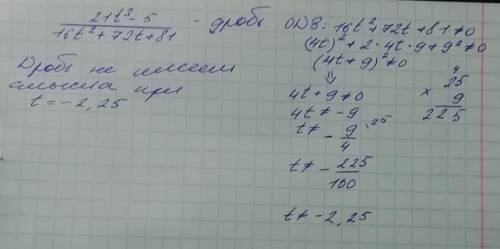 21t³ - 5
16t² + 72t + 81
- дробь
Дробь не имеет
смысла при
t = -2,25
ОДЗ: 16t² + 72t + 81 ≠ 0
(4t)² + 2·4t·9 + 9² ≠ 0
(4t + 9)² ≠ 0
⇓
4t + 9 ≠ 0
4t ≠ -9
t ≠ - 9/4 ·25
t ≠ - 225/100
t ≠ -2,25
4
25
× 9
225